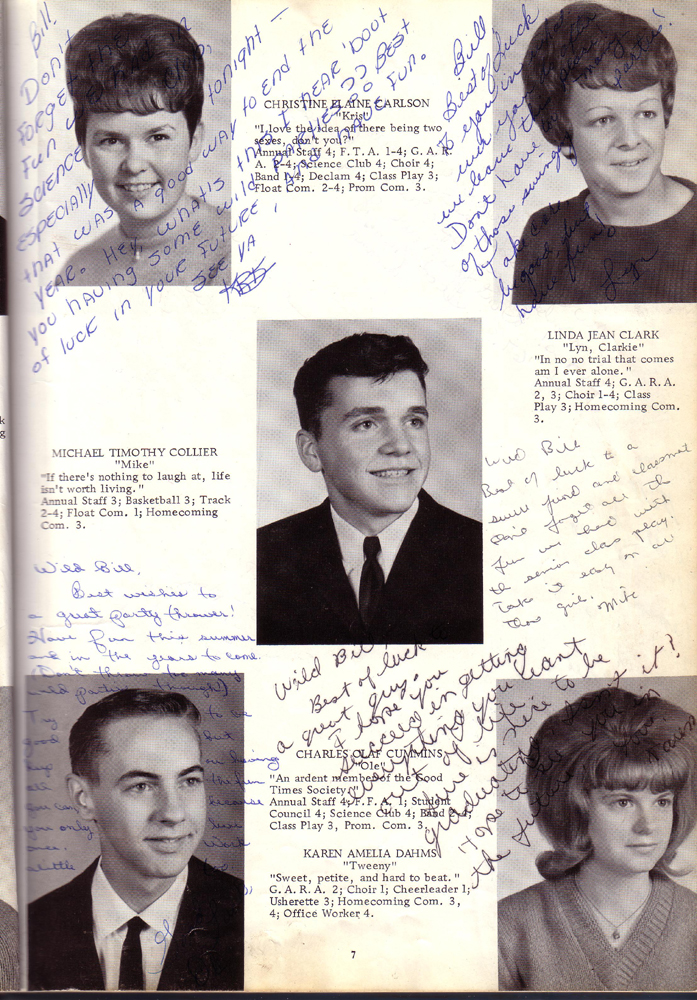 Bill,
Don't
forget the
fun we had in
science
especially tonight —
that was a good way to end the
year. Hey, what's this I hear 'bout
you having some wild parties?? Best
of luck in your future, and have fun.
See ya
Kris
CHRISTINE ELAINE CARLSON
"Kris"
"I love the idea of there being two
sexes, don't you?"
Annual Staff 4; F. T. A. 1-4; G. A. R.
A. 2-4; Science Club 4; Choir 4;
Band 1-4; Declam 4; Class Play 3;
Float Com. 2-4; Prom Com. 3.
Bill
Best of luck
to you in
Don't have
of those swinging
parties!
have fun!
Lyn
LINDA JEAN CLARK
"Lyn, Clarkie"
"In no no trial that comes
am I ever alone."
Annual Staff 4; G. A. R. A.
2, 3; Choir 1-4; Class
Play 3; Homecoming Com.
3.
MICHAEL TIMOTHY COLLIER
"Mike"
"If there's nothing to laugh at, life
isn't worth living."
Annual Staff 3; Basketball 3; Track
2-4; Float Com. 1; Homecoming
Com. 3.
Wild Bill
Best of luck to a
swell friend and classmate
Don't forget all the
fun we had with
the senior class play.
Take it easy on all
those girls.
Mike
Wild Bill,
Best wishes to
a great party-thrower!
Have fun this summer
and in the years to come.
(Don't throw too many
wild parties, though!)
Try to be
good but
keep on having
all the fun
you can because
you only live
once.
a little
Wild Bill
Best of luck to
a great guy.
I hope you
succeed in getting
everything you want
out of life.
Sure is nice to be
graduating isn't it?
Hope to see you in
the future.
Love
Karen
CHARLES OLAF CUMMINS
"Ole"
"An ardent member of the Good
Times Society."
Annual Staff 4; F.F. A. 1; Student
Council 4; Science Club 4; Band
Class Play 3, Prom. Com. 3.
KAREN AMELIA DAHMS
"Tweeny"
"Sweet, petite, and hard to beat."
G. A. R. A. 2; Choir 1; Cheerleader 1;
Usherette 3; Homecoming Com. 3,
4; Office Worker 4.
7